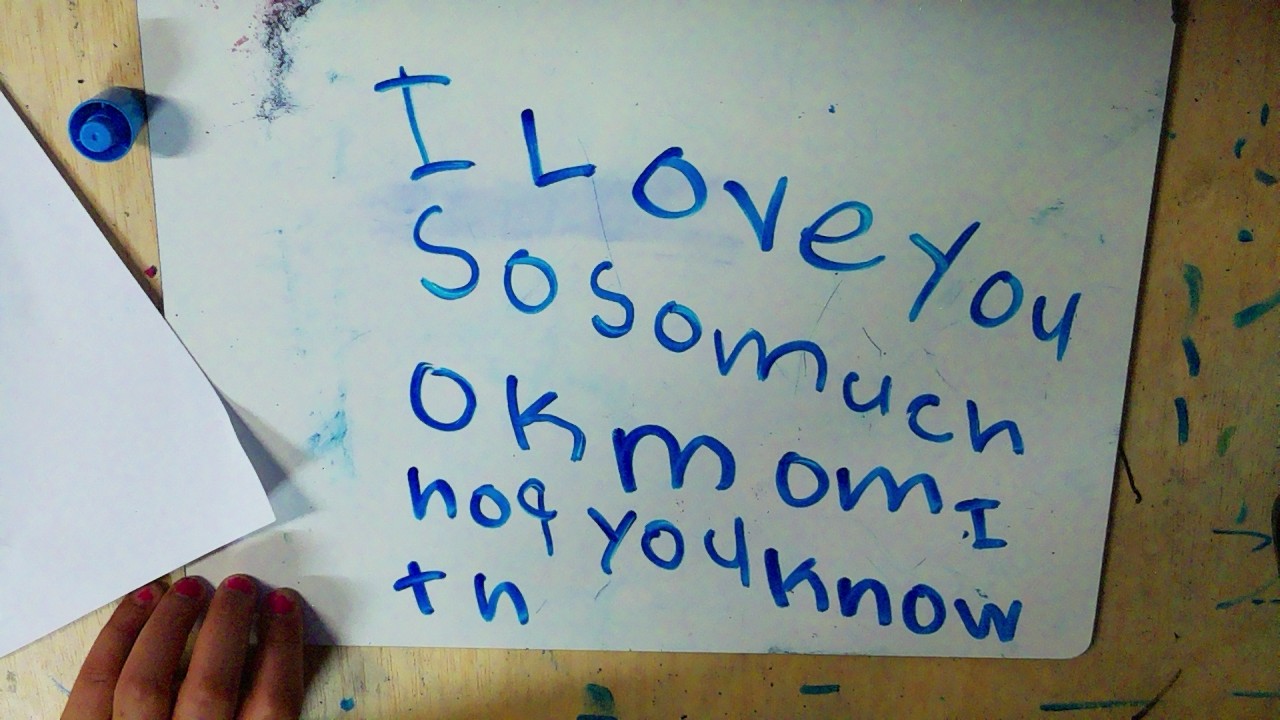 I Love you
So So much
OK mom I
hoq you know
th